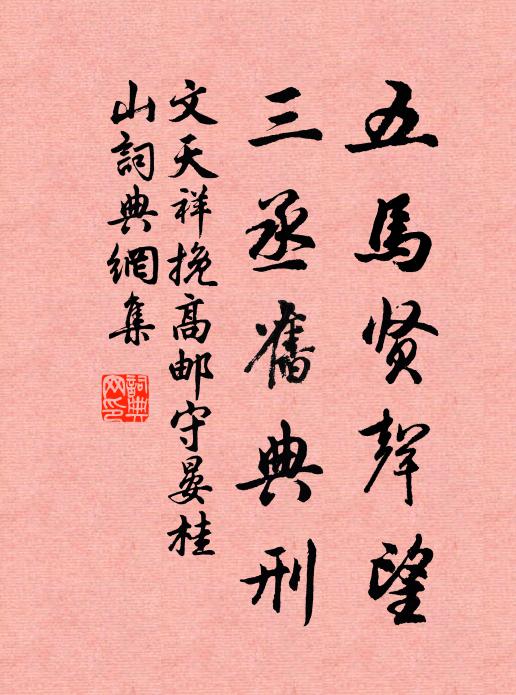 五馬贤聲望
三丞舊典刑
文天祥挽高邮守晏桂
山詞典網集
詞典
网印